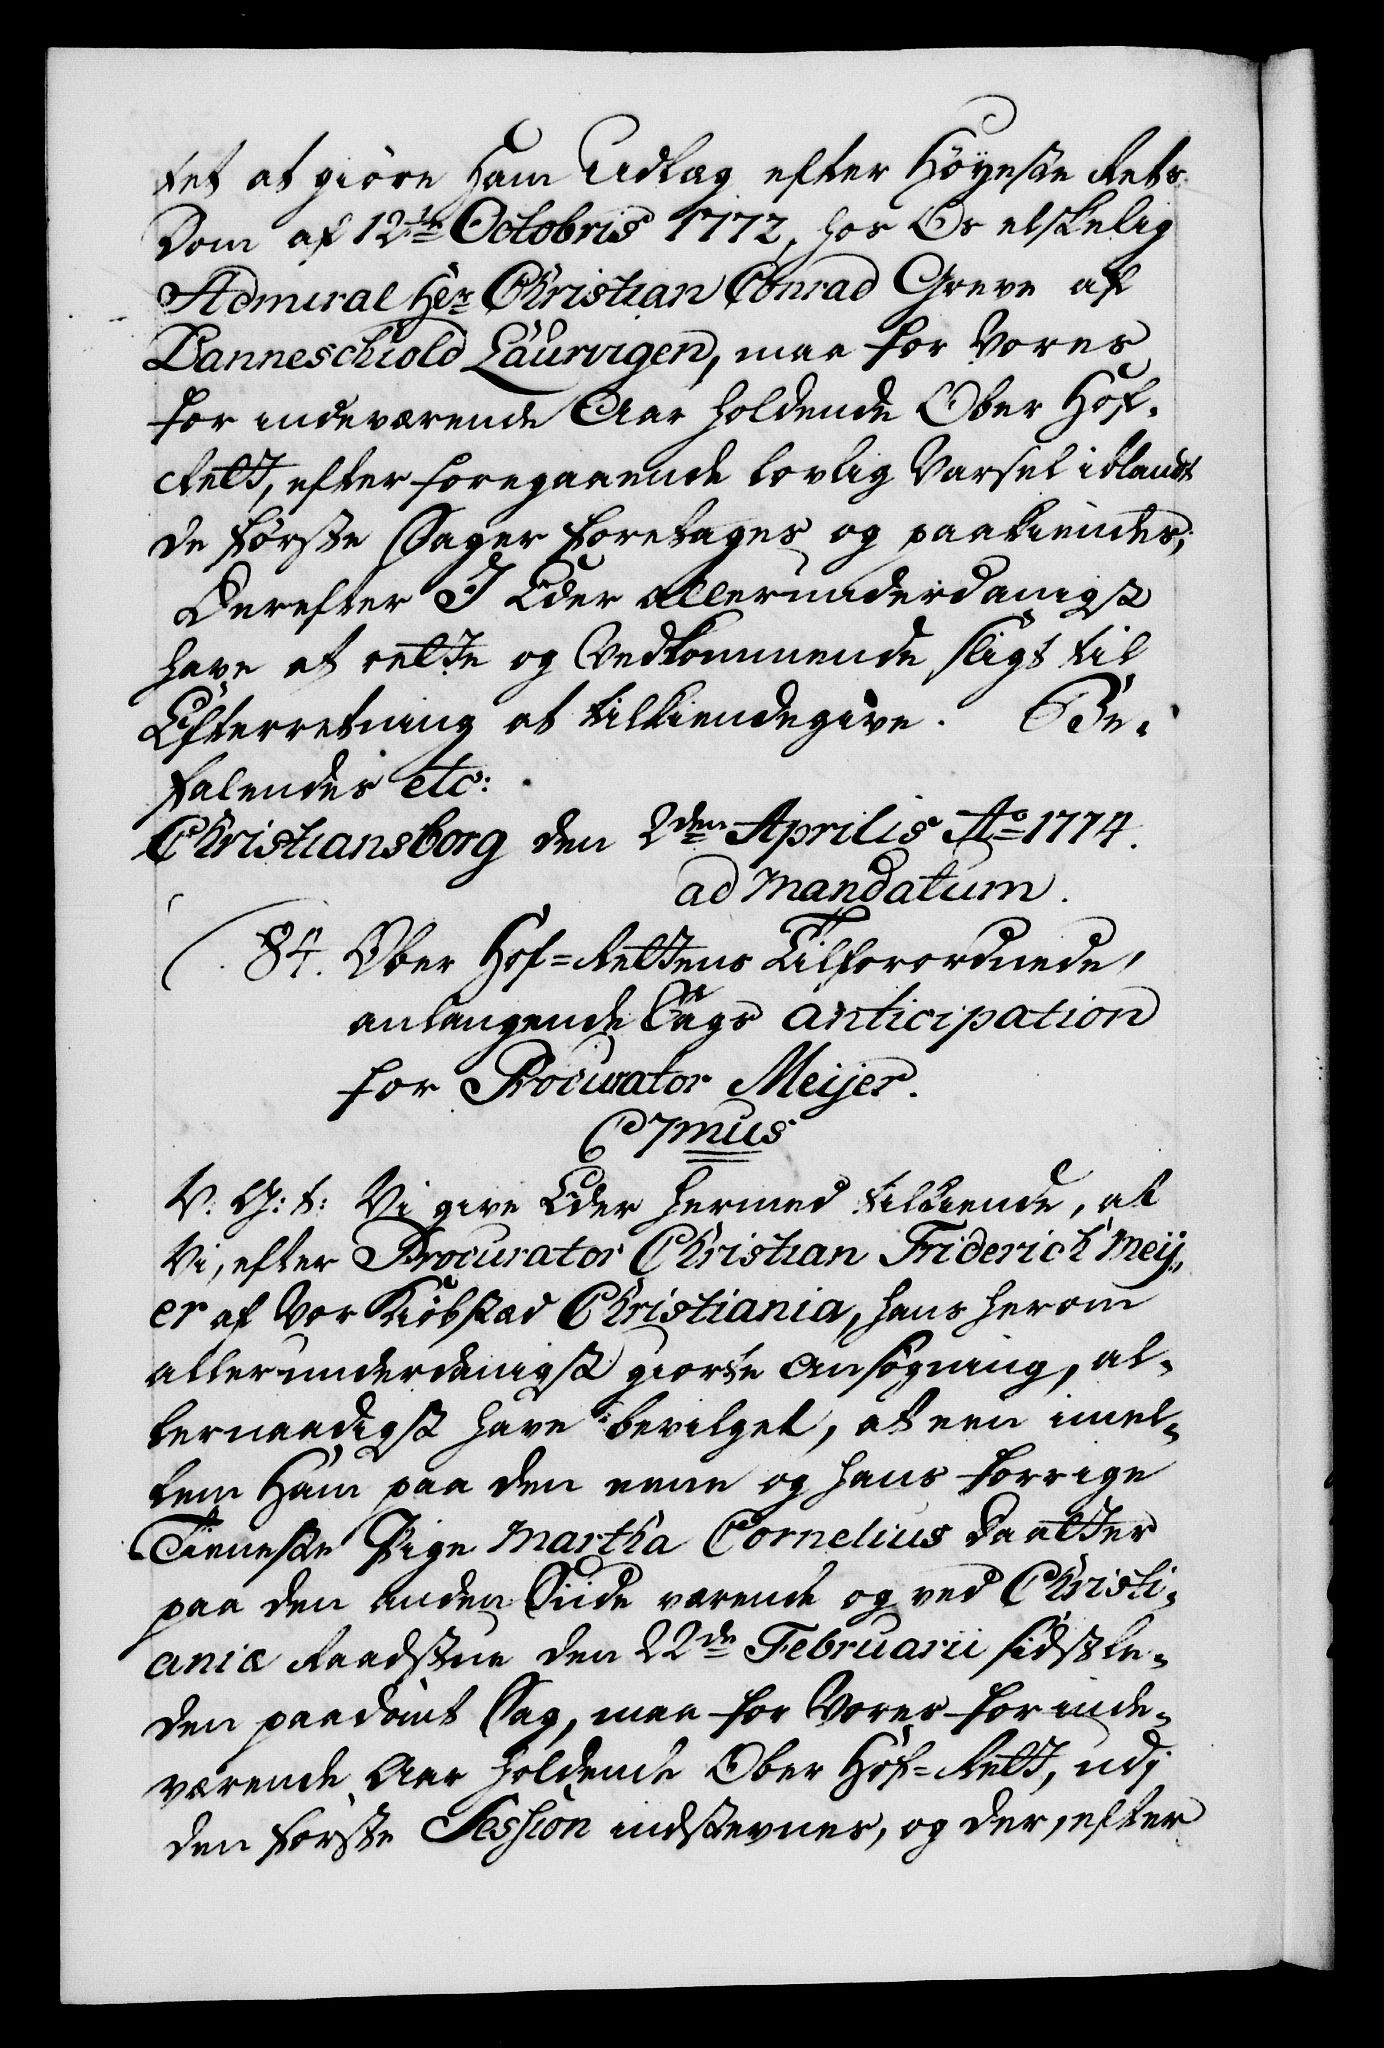 tet at giöre Ham Udlæg efter Höyeste Rets
Dom af 12te Octobris 1772, hos Os elskelig
Admiral Her Christian Conrad Greve af
Danneschiold Laurvigen, maa for Vores
for indeværende Aar holdende Ober Hof-
Rett, efter foregaaende lovlig Varsel iblandt
de første Sager foretages og paakiendes;
Derefter I Eder allerunderdanigst
have at rette og Vedkommende sligt til
Efterretning at tilkiendegive. Be-
falendes etc:
Christiansborg den 2den Aprilis Ao 1774.
ad Mandatum.
84. Ober Hof-Rettens Tilforordnede,
anlangende Sags anticipation
for Procurator Meijer.
C 7mus
V. G: t: Vi give Eder hermed tilkiende, at
Vi, efter Procurator Christian Friderich Meij-
er af Vor Kiöbstæd Christiania, hans herom
allerunderdanigst giorte Ansögning, al-
lernaadigst have bevilget, at een imel-
lem Ham paa den eene og hans forrige
Tieneste Pige Martha Cornelius Daatter
paa den anden Siide værende og ved Christi-
aniæ Raadstue den 22de Februarii sidstle-
den paadömt Sag, maa for Vores for inde-
værende Aar holdende Ober Hof-Rett, udj
den første Session indstevnes, og der, efter